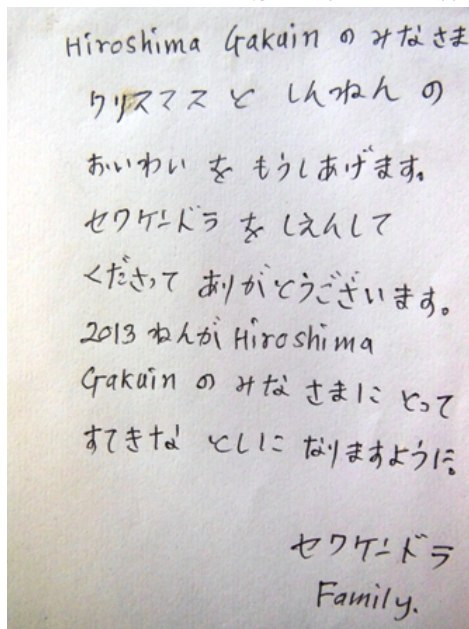 Hiroshima Gakuin の みなさま
クリスマス と しんねん の
おいわい を もうしあげます。
セワケンドラ を しえんして
くださって ありがとうございます。
2013 ねんが Hiroshima
Gakuin の みな さまに とって
すてきな としに なりますように。
セワケンドラ
Family.